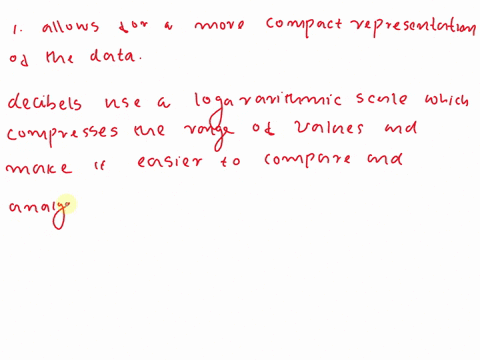 1. allows for a more compact representation
of the data.
decibels use a logararithmic scale which
compresses the range of values and
make it easier to compare and
analy